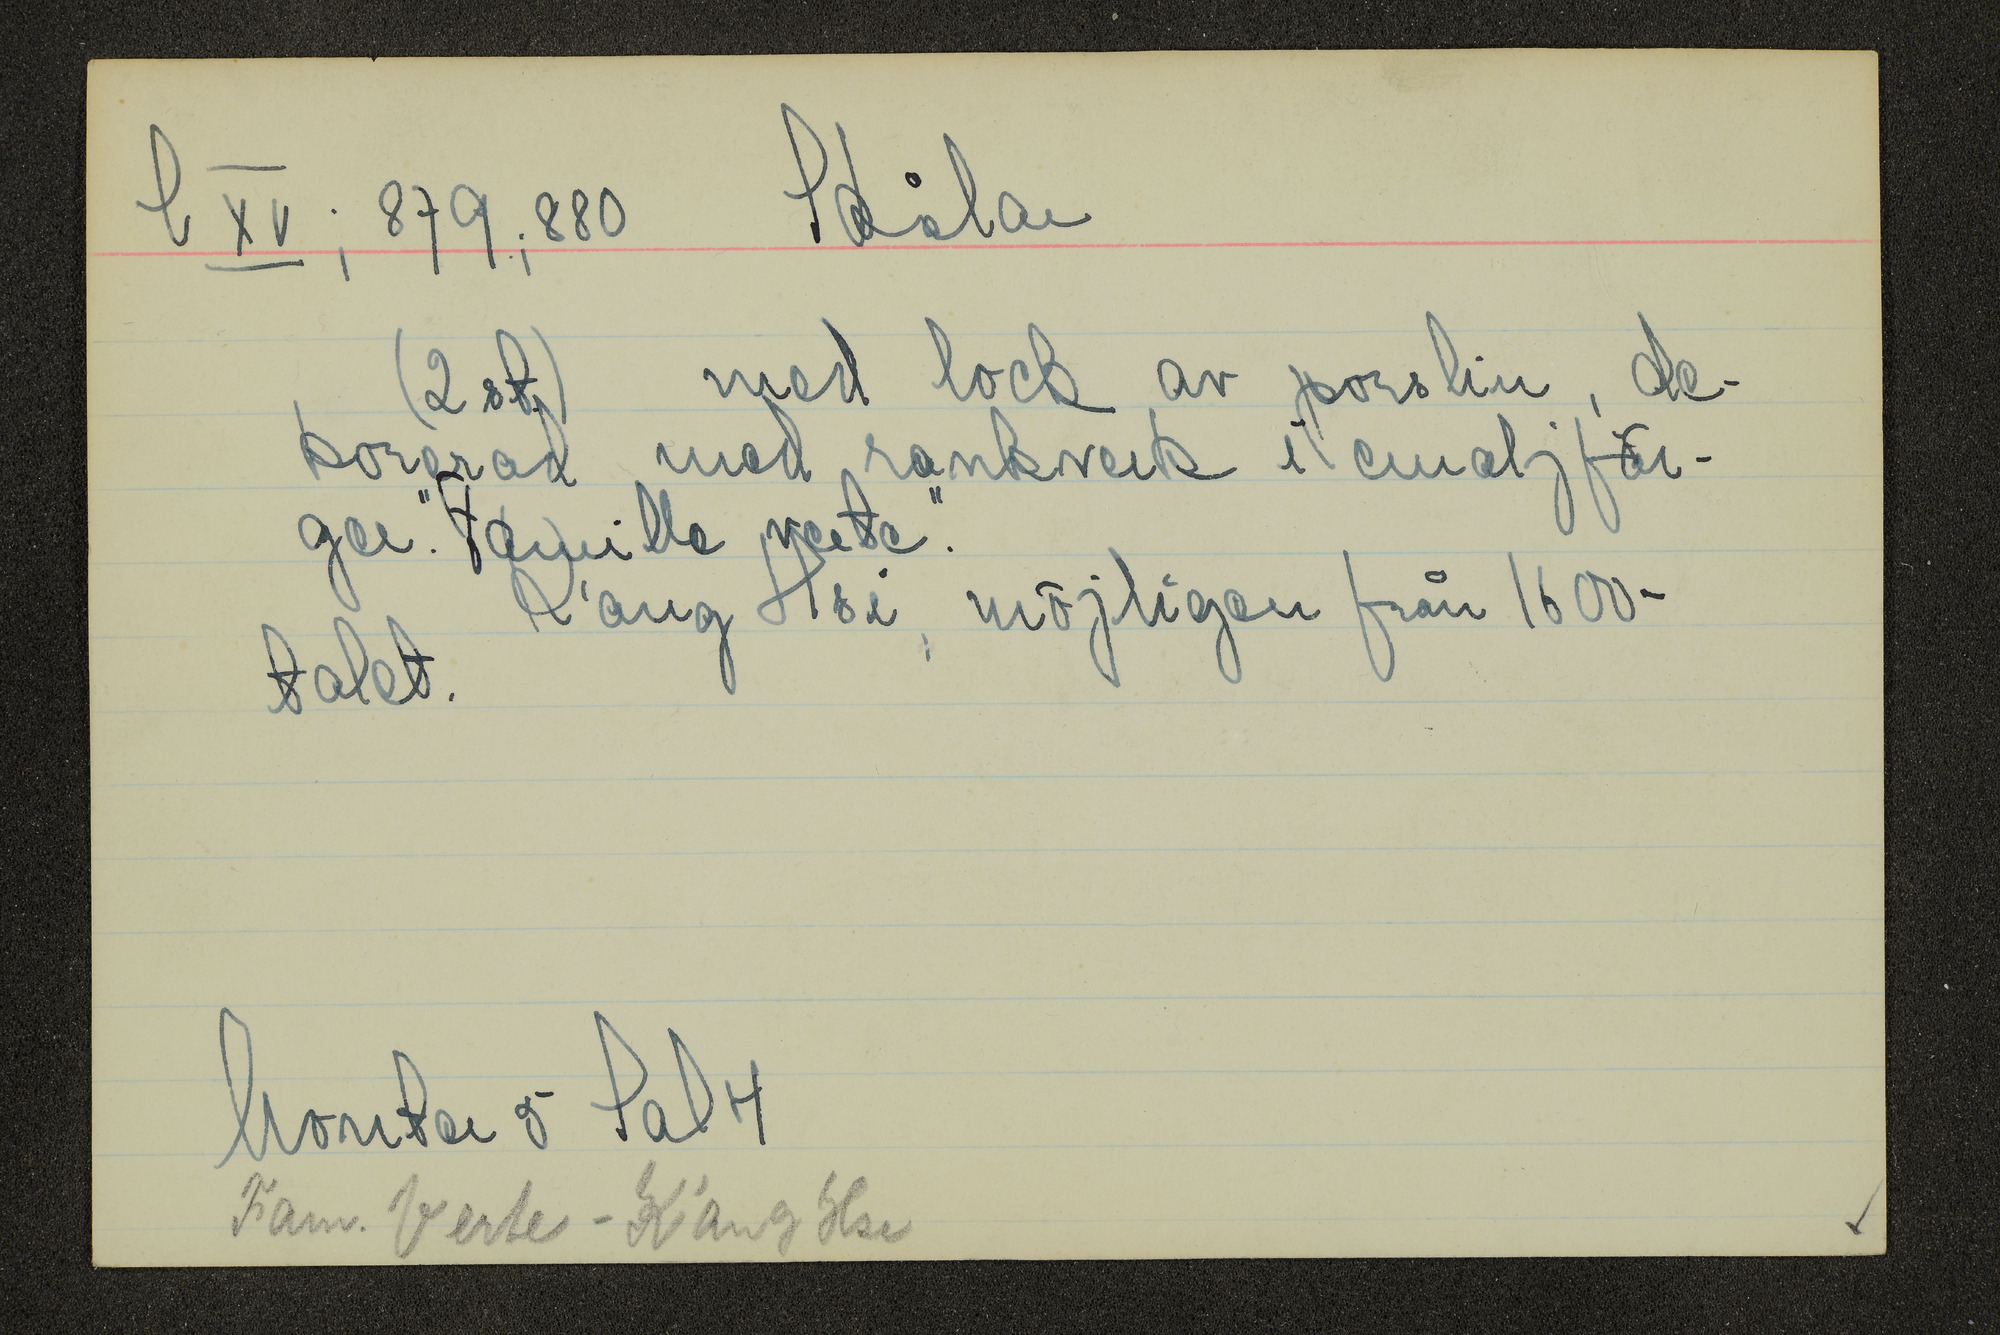 L XV; 879.; 880 Skålar
(2 st) med lock av porslin, de-
korerad med rankverk i emaljfär-
ger. "Famille verte".
K'ang Hsi, möjligen från 1600-
talet.
Monter 5 Sal 4
Fam. Verte - K'ang Hsi